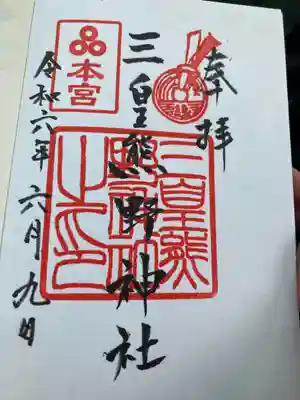 奉拝
三皇熊野神社
本宮
令和六年 六月九日
三皇熊
野神社
之印